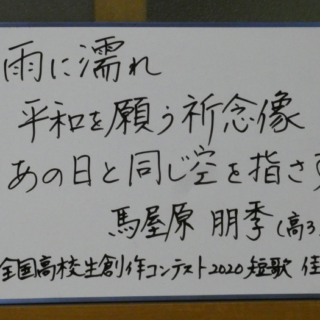 雨に濡れ
平和を願う祈念像
あの日と同じ空を指さす
馬屋原 朋季(高3
全国高校生創作コンテスト2020 短歌 佳